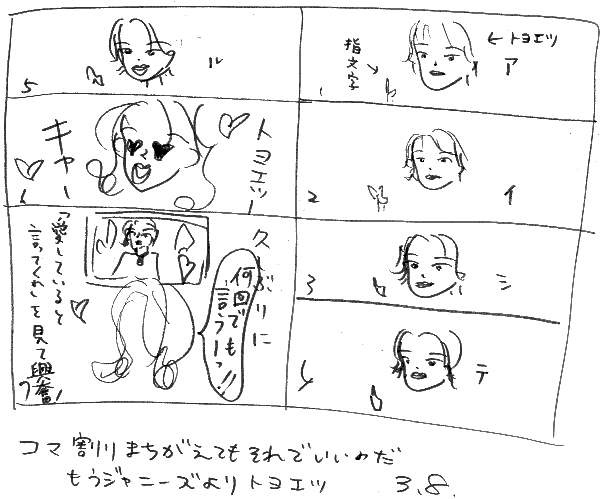 ←トヨエツ
指文字
ア
1
イ
2
シ
3
テ
4
ル
5
トヨエツー
キャー
6
久しぶりに
「愛していると
言ってくれ」を見て興奮!
何回でも
言うーっ!!
7
コマ割りまちがえてもそれでいいのだ
もうジャニーズよりトヨエツ 3.8.